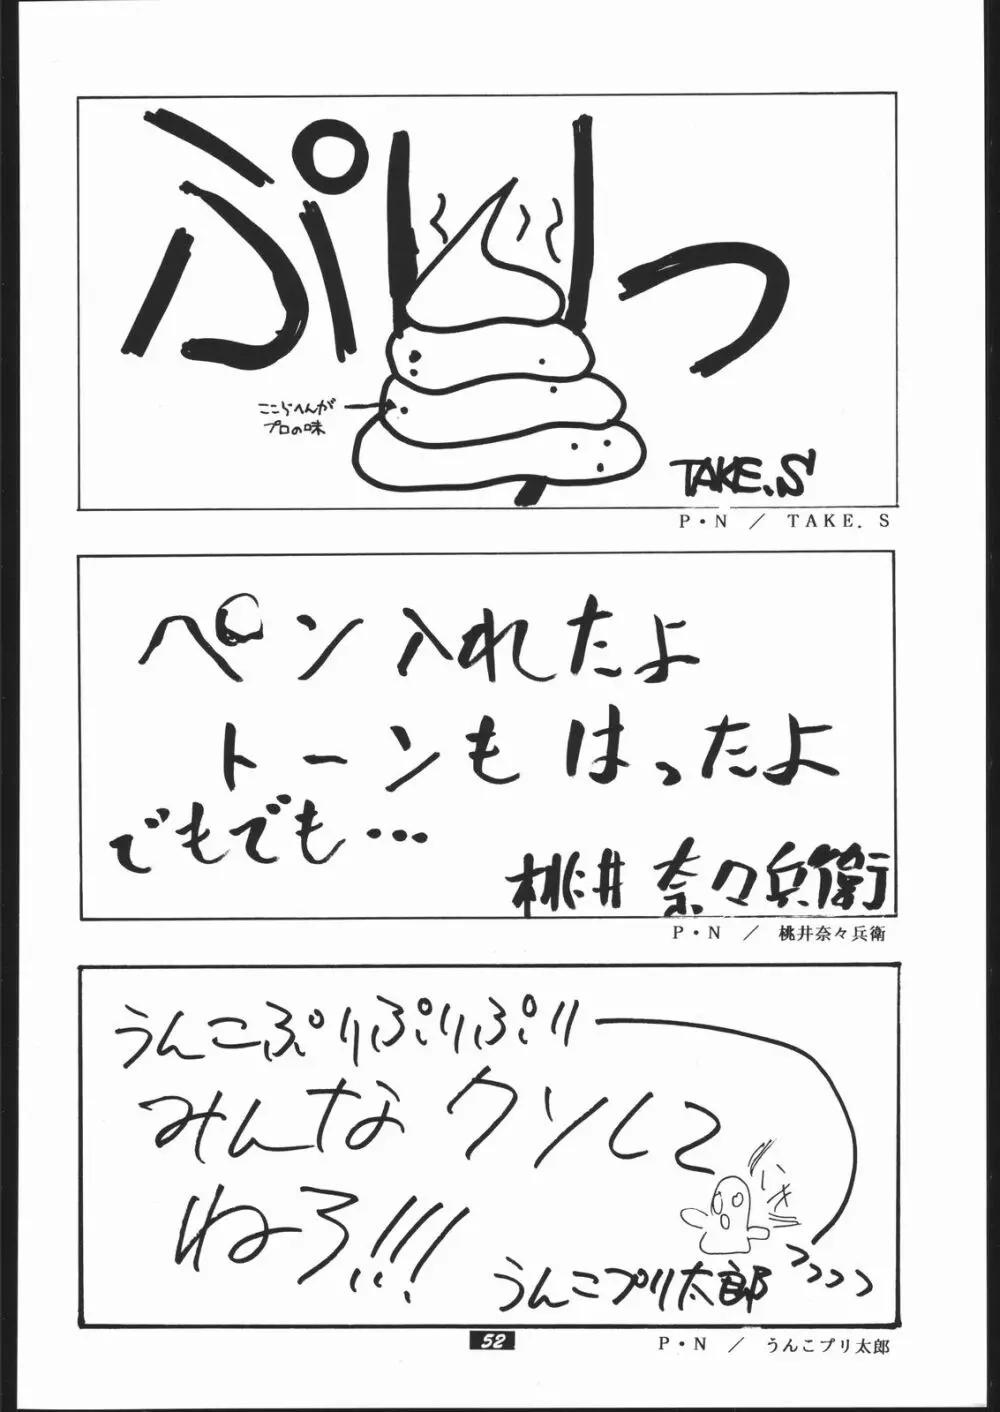 ぷりっ
ここらへんが
プロの味
TAKE.S
P・N ／ TAKE. S
ペン入れたよ
トーンもはったよ
でもでも…
桃井奈々兵衛
P・N ／ 桃井奈々兵衛
うんこぷりぷりぷり
みんなクソして
ねろ!!!
いき
うんこプリ太郎
52
P・N ／ うんこプリ太郎